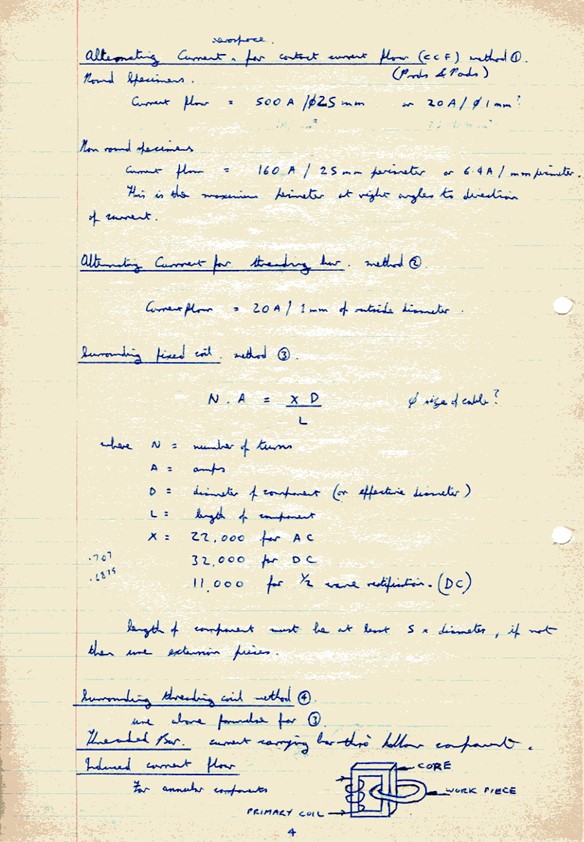 aerospace.
Alternating Current. for contact current flow (CCF) method ①.
(Prods & Pads)
Round Specimens.
Current flow = 500 A / ϕ25 mm or 20 A / ϕ 1 mm?
Non round specimens
Current flow = 160 A / 25 mm perimeter or 6.4 A / mm perimeter.
This is the maximum perimeter at right angles to direction
of current.
Alternating Current for threading bar. method ②.
Current flow = 20 A / 1 mm of outside diameter.
Surrounding fixed coil. method ③.
N. A = X D / L ϕ size of cable?
where N = number of turns
A = amps
D = diameter of component (or effective diameter)
L = length of component
X = 22,000 for AC
.707
32,000 for DC
.6875
11,000 for 1/2 wave rectification. (DC)
length of component must be at least 5 x diameter, if not
then use extension pieces.
Surrounding threading coil method ④.
use above formulae for ③.
Threaded Bar. current carrying bar thro' hollow component.
Induced current flow
For annular components
CORE
WORK PIECE
PRIMARY COIL
4